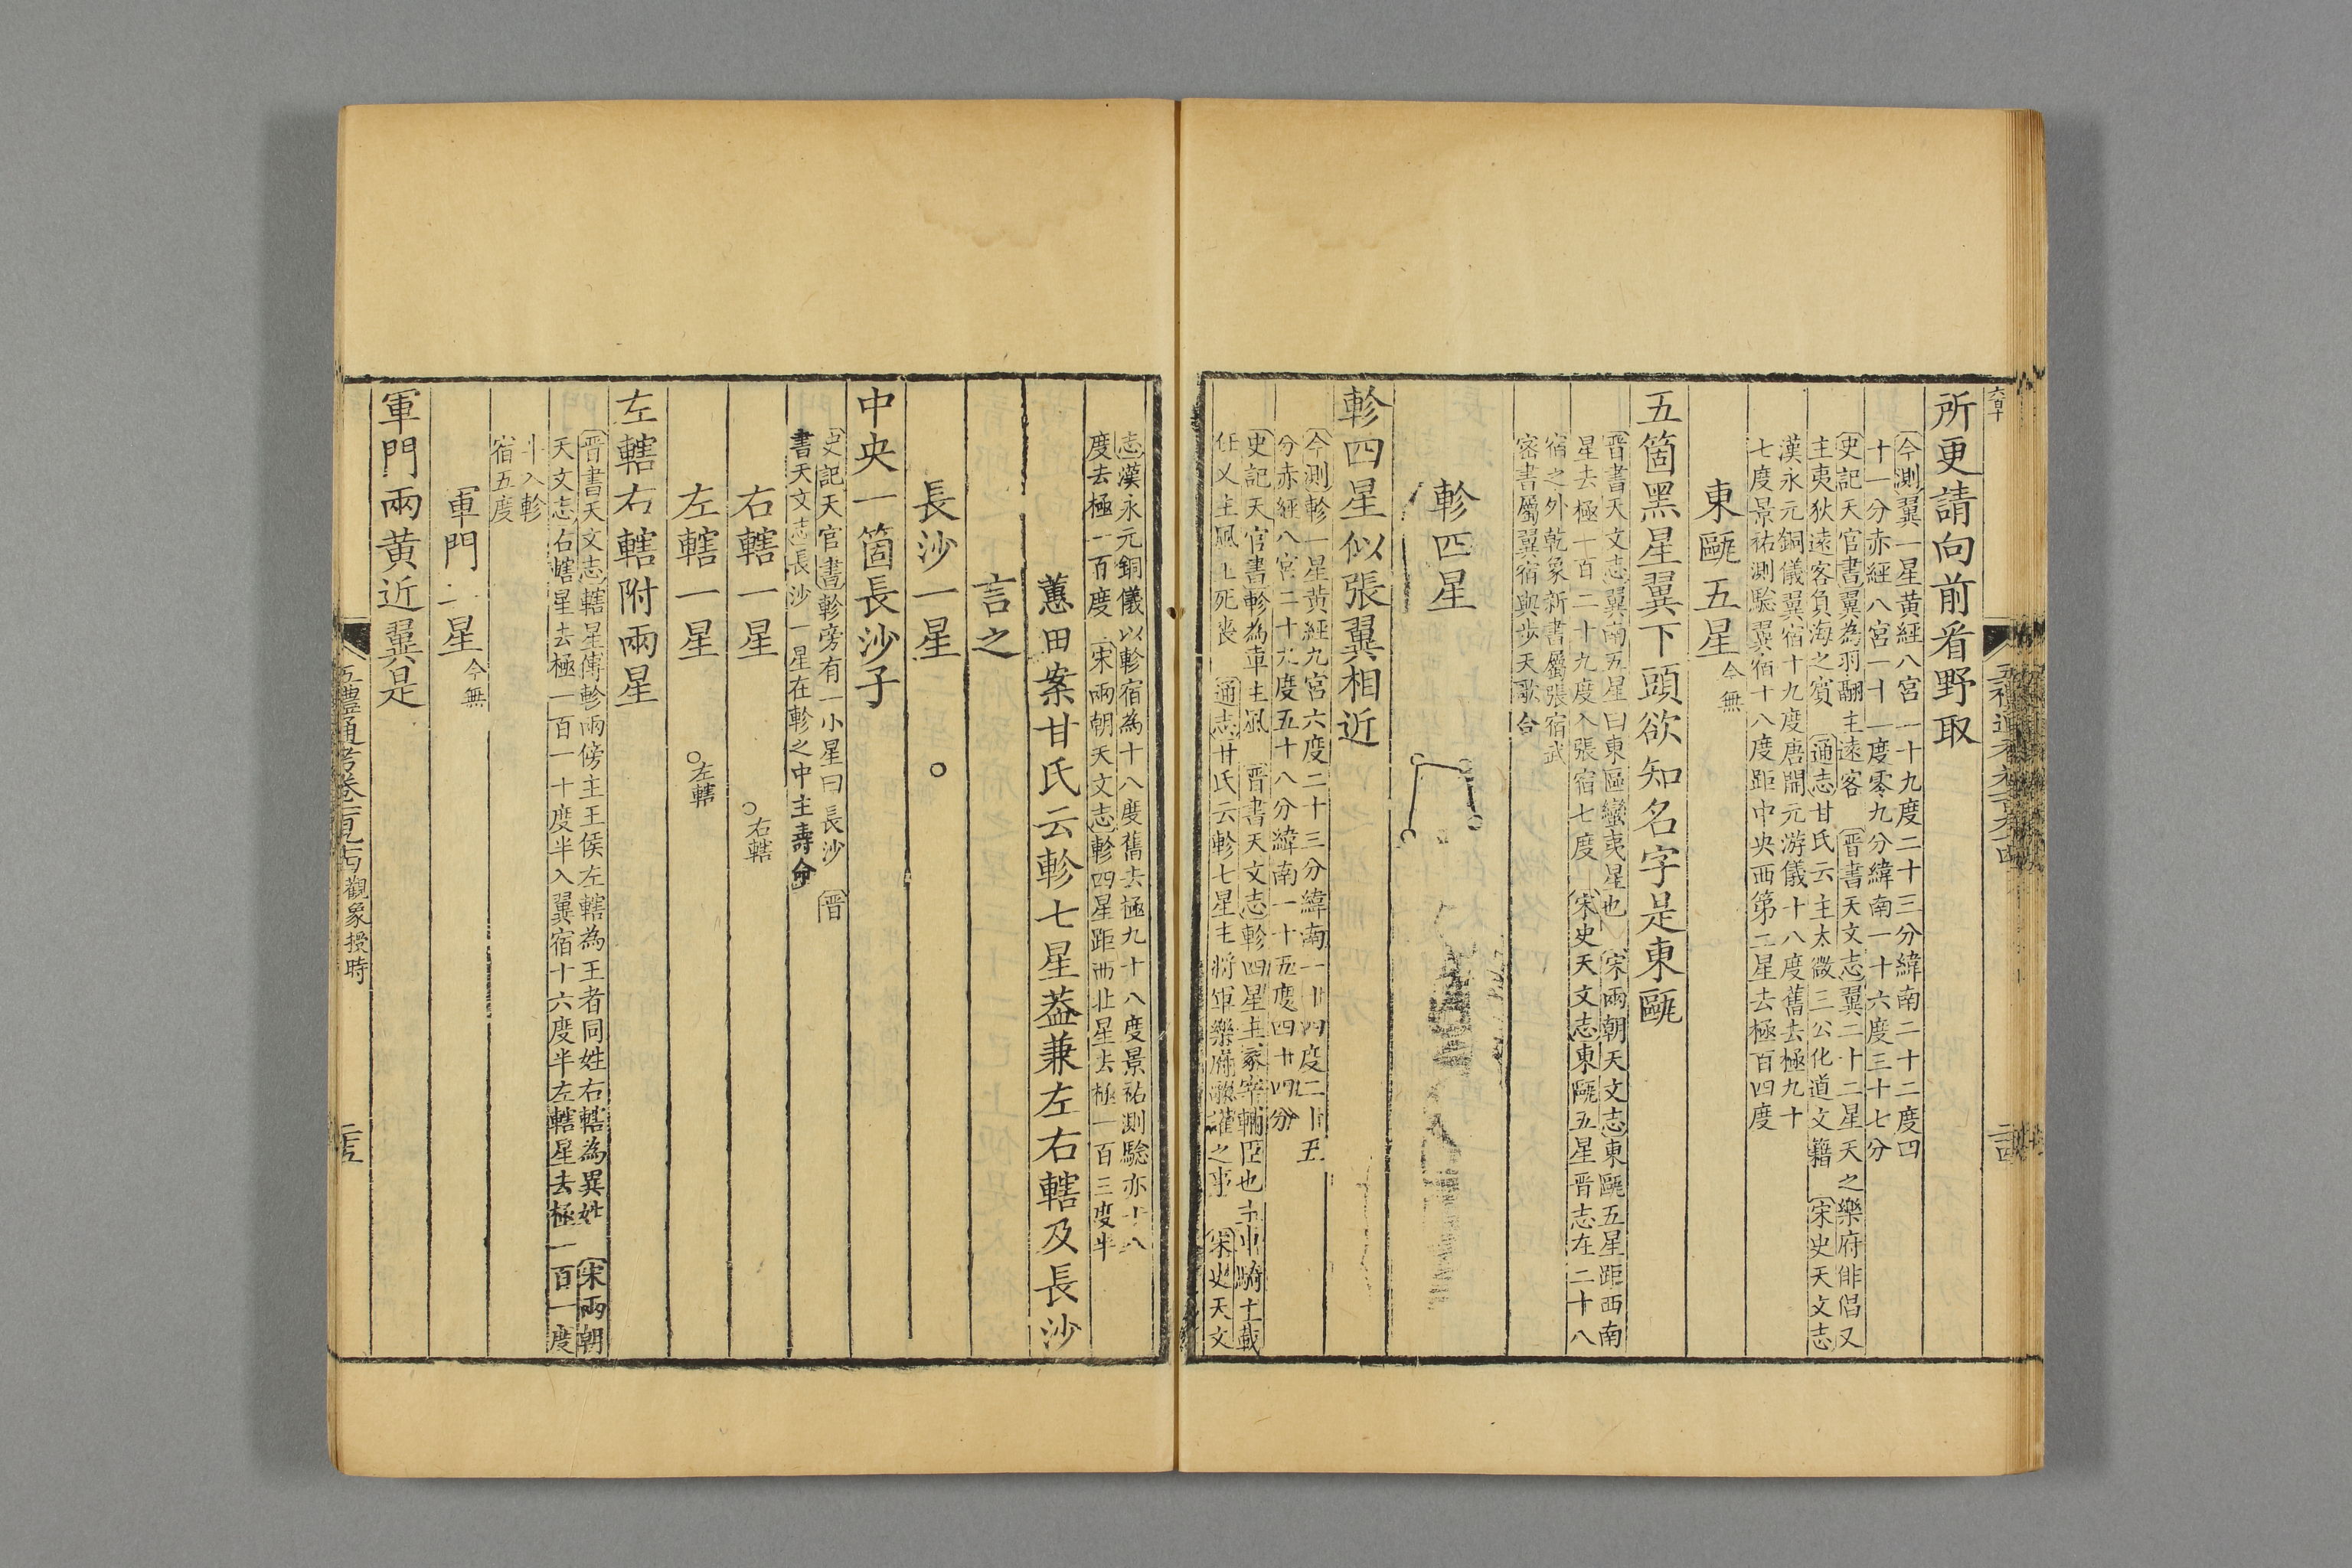 六百十
所更請向前看野取
今測翼一星黃經八宮一十九度二十三分緯南二十二度四
十一分赤經八宮一十一度零九分緯南一十六度三十七分
史記天官書翼為羽翮主遠客 晋書天文志翼二十二星天之樂府俳倡又
主夷狄遠客負海之賓 通志甘氏云主太微三公化道文籍 宋史天文志
漢永元銅儀翼宿十九度唐開元游儀十八度舊去極九十
七度景祐測驗翼宿十八度距中央西第二星去極百四度
東甌五星今無
五箇黑星翼下頭欲知名字是東甌
晋書天文志翼南五星曰東區蠻夷星也 宋兩朝天文志東甌五星距西南
星去極一百二十九度入張宿七度 宋史天文志東甌五星晋志在二十八
宿之外乾象新書屬張宿武
密書屬翼宿與步天歌合
軫四星
軫四星似張翼相近
今測軫一星黃經九宮六度二十三分緯南一十四度二十五
分赤經八宮二十九度五十八分緯南一十五度四十四分
史記天官書軫為車主風 晋書天文志軫四星主冢宰輔臣也主車騎主載
任又主風主死喪 通志甘氏云軫七星主將軍樂府歌讙之事 宋史天文
志漢永元銅儀以軫宿為十八度舊去極九十八度景祐測驗亦十八
度去極一百度 宋兩朝天文志軫四星距西北星去極一百三度半
蕙田案甘氏云軫七星蓋兼左右轄及長沙
言之
長沙一星
中央一箇長沙子
史記天官書軫旁有一小星曰長沙 晋
書天文志長沙一星在軫之中主壽命
右轄一星 右轄
左轄一星 左轄
左轄右轄附兩星
晋書天文志轄星傅軫兩傍主王侯左轄為王者同姓右轄為異姓 宋兩朝
天文志右轄星去極一百一十度半入翼宿十六度半左轄星去極一百一度
十入軫
宿五度
軍門二星今無
軍門兩黃近翼是
五禮通考卷一百九十四 觀象授時
二十五